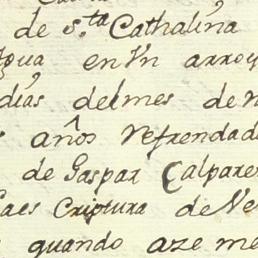 de S.ta Cathalina
en Vn arroy
dias del mes de
años Refrendad
de Gaspar Calpare
Criptura de Ve
quando aze me